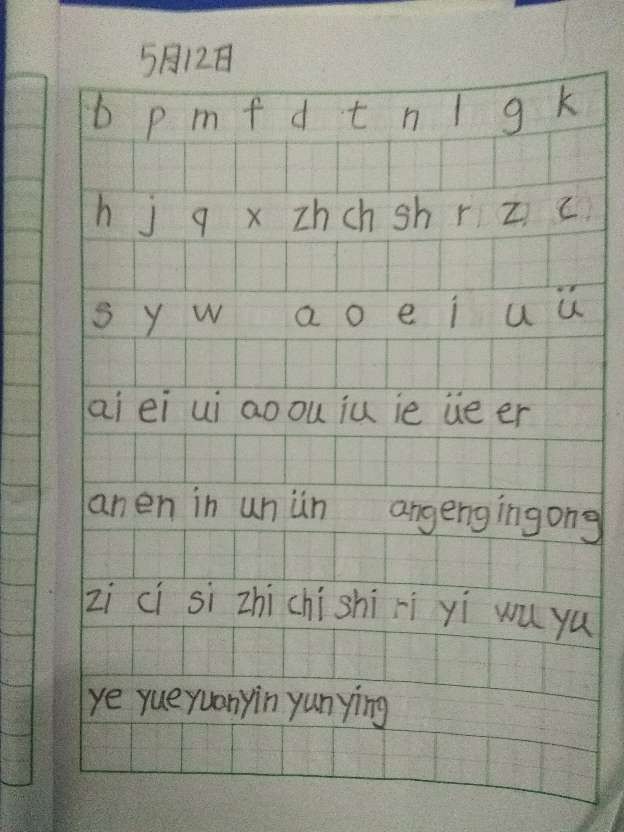 5月12日
b p m f d t n l g k
h j q x zh ch sh r z c
s y w a o e i u ü
ai ei ui ao ou iu ie üe er
an en in un ün ang eng ing ong
zi ci si zhi chi shi ri yi wu yu
ye yue yuan yin yun ying